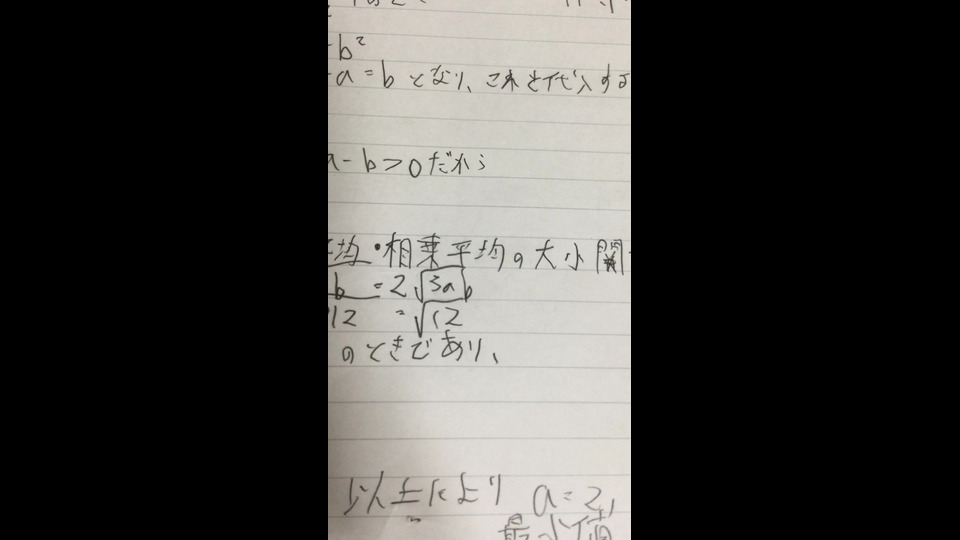 -b²
-a=bとなり、これを代入する
a-b>0だから
均・相乗平均の大小関
b =2√3ab
12 =√12
のときであり、
以上により a=2,
最小値